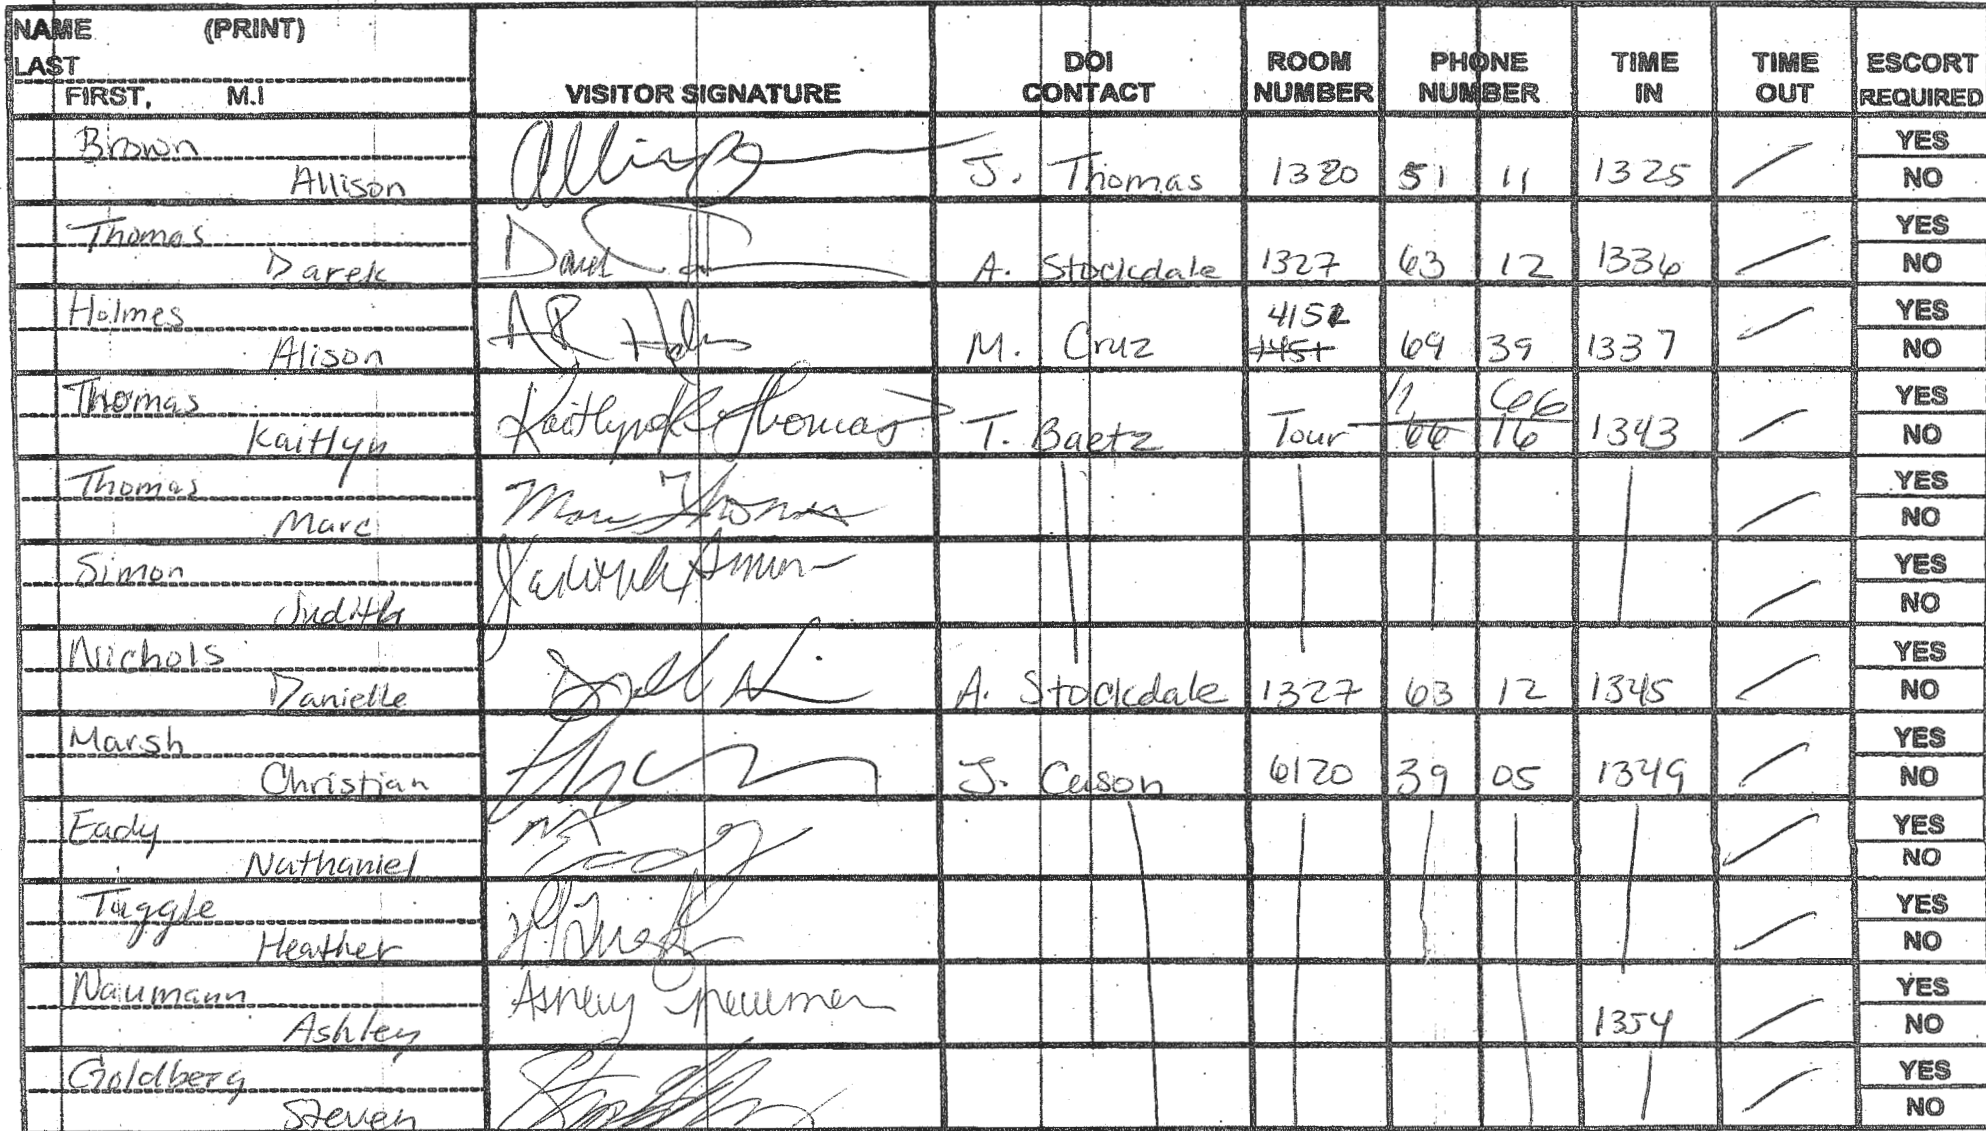 NAME (PRINT)
LAST
FIRST, M.I
VISITOR SIGNATURE
DOI CONTACT
ROOM NUMBER
PHONE NUMBER
TIME IN
TIME OUT
ESCORT REQUIRED
Brown
Allison J. Thomas 1320 51 11 1325 YES NO
Thomas
Darek A. Stockdale 1327 63 12 1336 YES NO
Holmes
Alison M. Cruz 4152 1451 69 39 1337 YES NO
Thomas
Kaitlyn Kaitlyn Thomas T. Baetz Tour 12 66 66 16 1343 YES NO
Thomas
Marc Marc Thomas YES NO
Simon
Judith Judith Simon YES NO
Nichols
Danielle A. Stockdale 1327 63 12 1345 YES NO
Marsh
Christian J. Cason 6120 39 05 1349 YES NO
Eady
Nathaniel YES NO
Tuggle
Heather YES NO
Naumann
Ashley 1354 YES NO
Goldberg
Steven YES NO